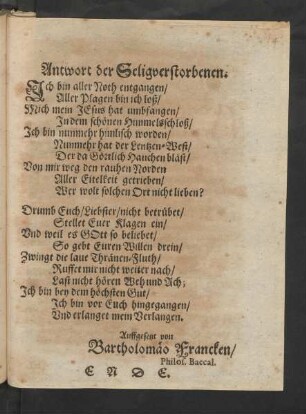 Antwort der Seligverstorbenen.
Ich bin aller Noth entgangen/
Aller Plagen bin ich loß/
Mich mein JEsus hat umbfangen/
In dem schönen Himmelsschloß/
Ich bin nunmehr himlisch worden/
Nunmehr hat der Lentzen-West/
Der da Göttlich Hauchen bläst/
Von mir weg den rauhen Norden
Aller Eitelkeit getrieben/
Wer wolt solchen Ort nicht lieben?
Drumb Euch/Liebster/nicht betrübet/
Stellet Euer Klagen ein/
Und weil es GOtt so beliebet/
So gebt Euren Willen drein/
Zwingt die laue Thränen-Fluth/
Ruffet mir nicht weiter nach/
Last nicht hören Weh und Ach;
Ich bin bey dem höchsten Gut/
Ich bin vor Euch hingegangen/
Und erlanget mein Verlangen.
Auffgesetzt von
Bartholomäo Francken/
Philos. Baccal.
E N D E.